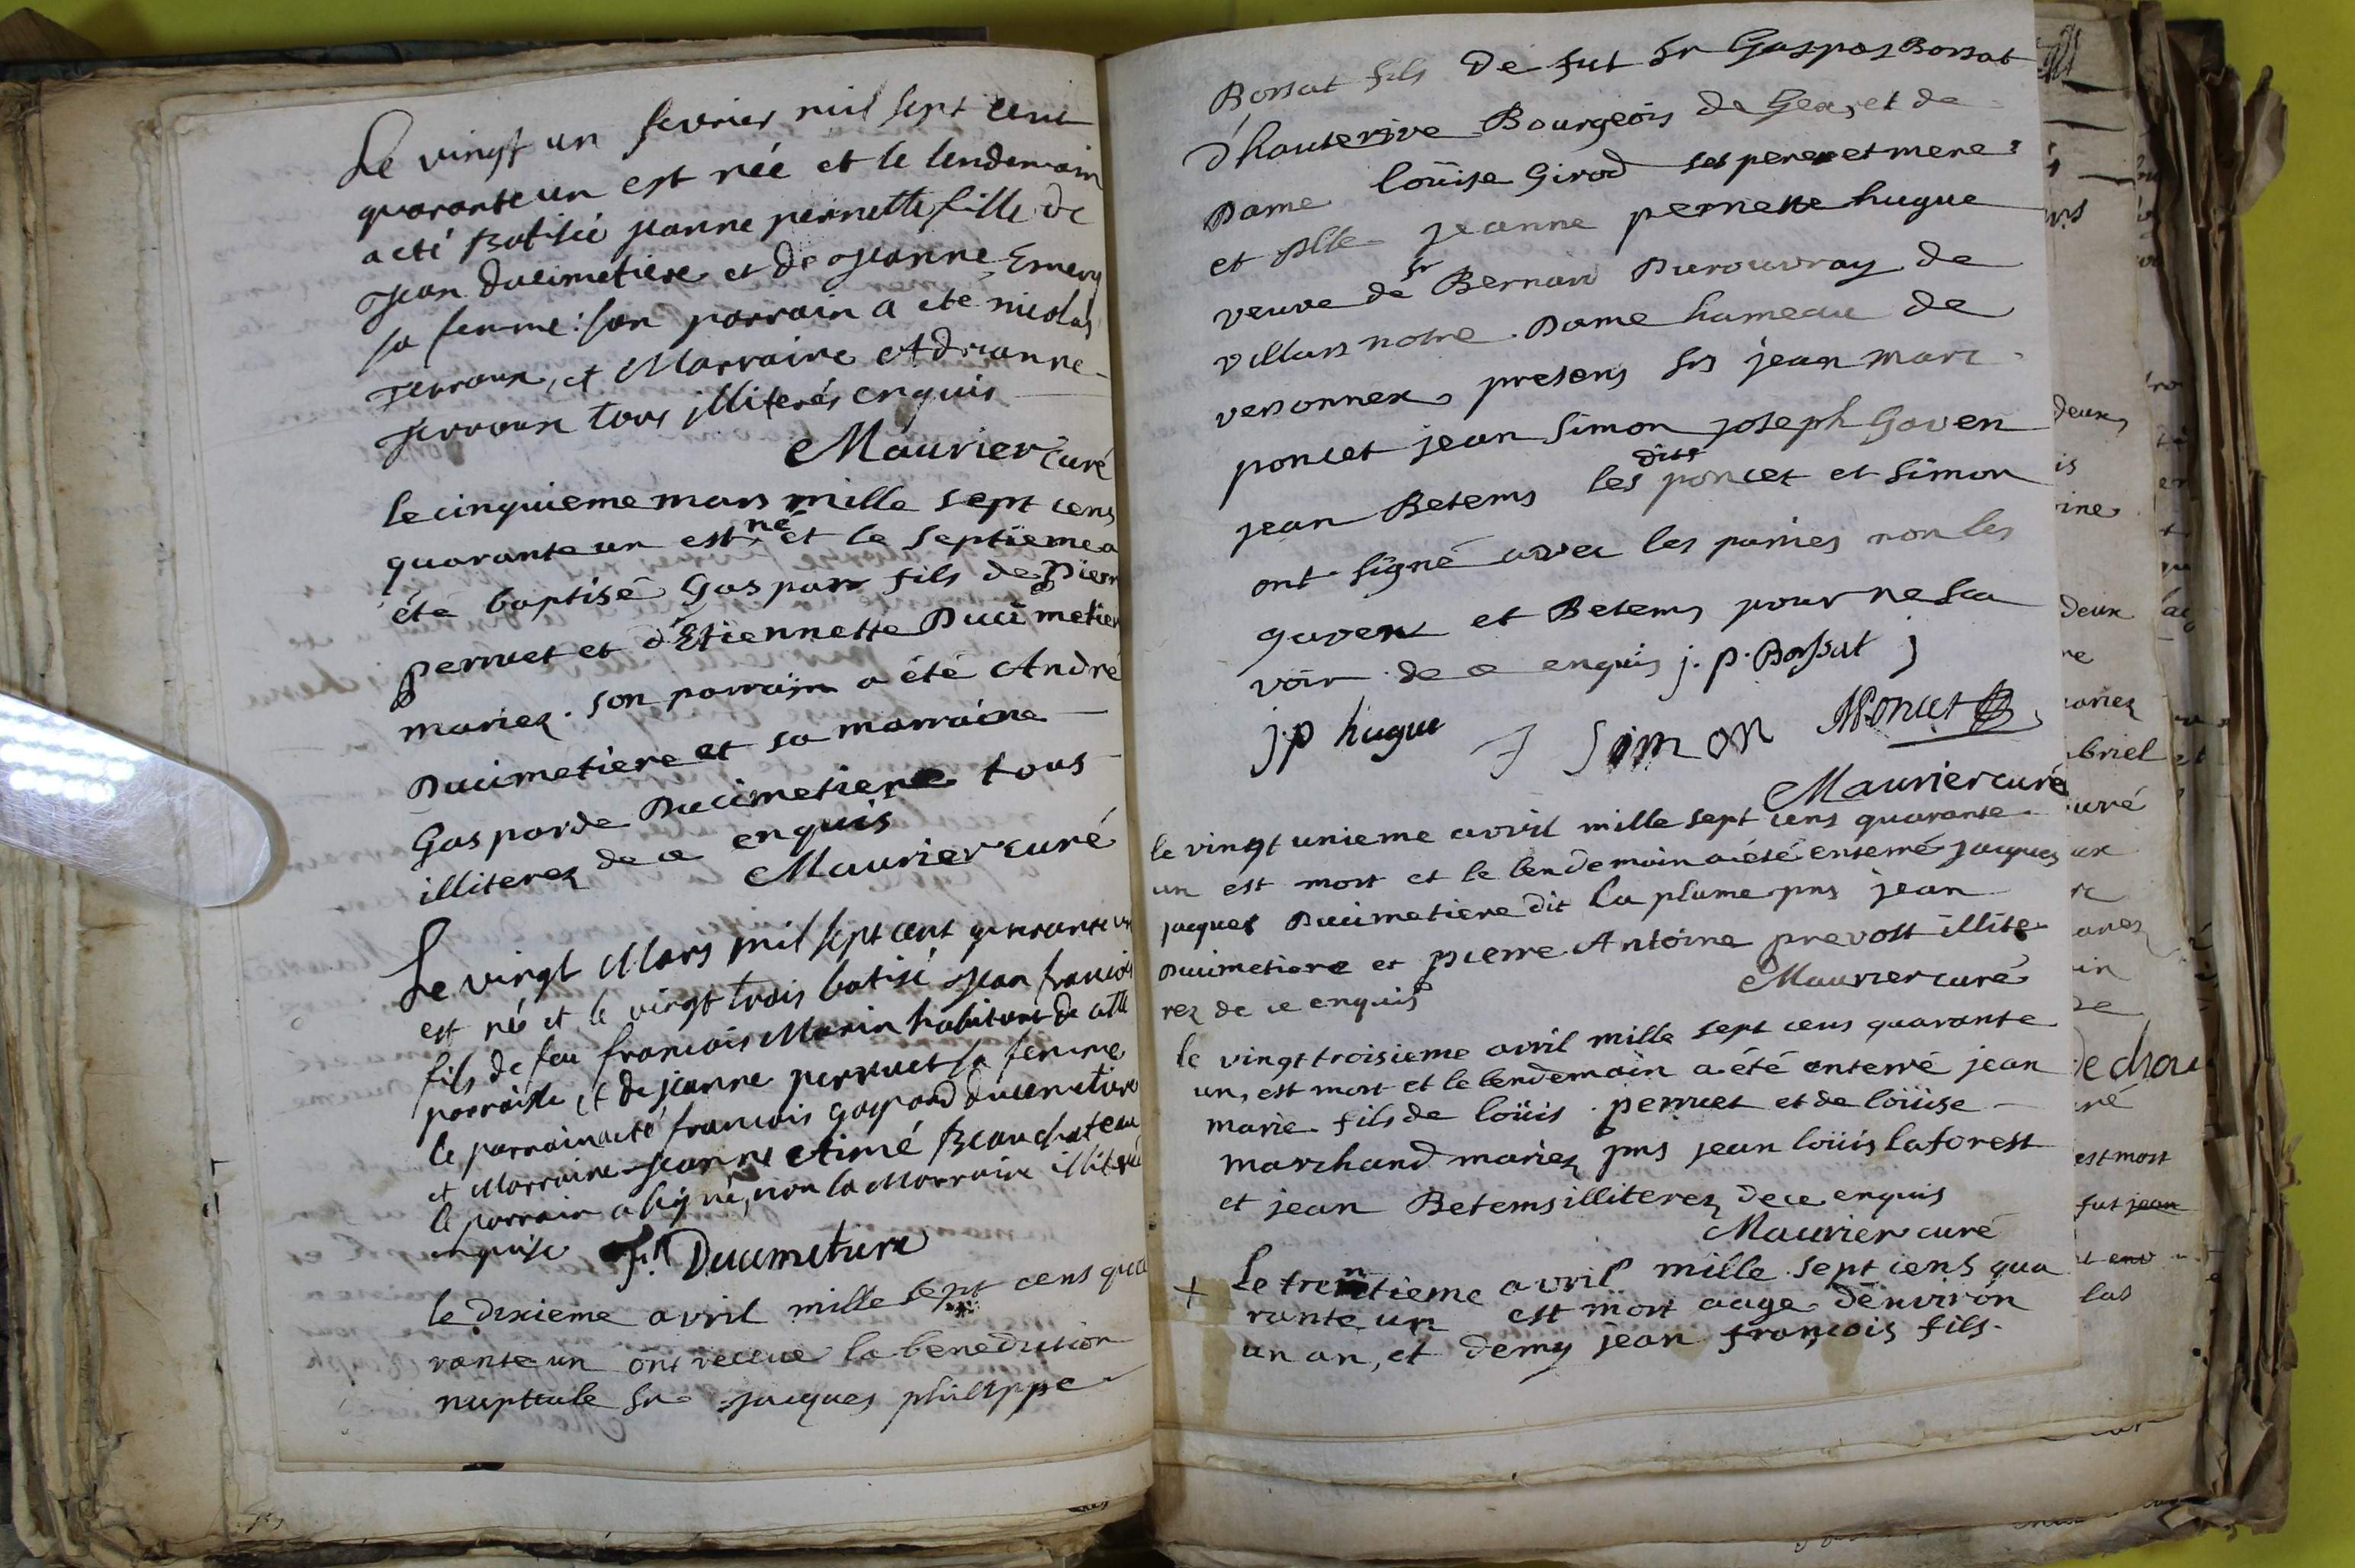 Le vingt un fevrier mil sept cent
quarante un est née et le lendemain
a eté Batisée jeanne pernette fille de
jean ducimetiere et de jeanne Emery
sa femme: son parrain a ete nicolas
jerroux, et Marraine Adrianne
jerroux tous illiterés enquis
Maurier curé
le cinquieme mars mille sept cens
quarante un est né et le septieme a
été baptisé Gaspar fils de Pierr
perruet et d'Etiennette Ducimetier
mariez. son parrain a été André
Ducimetiere et sa marraine
Gasparde Ducimetiere tous
illiterez de ce enquis
Maurier curé
Le vingt Mars mil sept cent quarante un
est né et le vingt trois batisé jean francois
fils de feu francois Marin habitant de cette
parroisse et de jeanne perruet sa femme
le parrain a eté francois gaspard ducimetiere
et Marraine jeanne Aimé Beauchateau
le parrain a signé, non la Marraine illiterée
enquise f. Ducimetiere
le dixieme avril mille sept cens qua
rante un ont receue la benediction
nuptiale Sr jacques philippe
Borsat fils de fut Sr Gaspar Borsat
d'hauterive Bourgeois de Gex, et de
Dame loüise Girod ses pere et mere
et Dlle jeanne pernette hugue
veuve de Sr Bernard Durouvray de
villars notre Dame hameau de
versonnex, presens Srs jean marc
poncet jean Simon joseph Gaven
jean Betems les dits poncet et Simon
ont signé avec les parties non les
gaven et Betems pour ne sca
voir de ce enquis j. p. Borssat
j p hugue J Simon Poncet
Maurier curé
le vingt unieme avril mille sept cens quarante
un est mort et le lendemain a été enterré jacques
jacques Ducimetiere dit la plume pns jean
Ducimetiere et pierre Antoine prevost illite
rez de ce enquis Maurier curé
le vingt troisieme avril mille sept cens quarante
un, est mort et le lendemain a été enterré jean
marie fils de loüis perruet et de loüise
marchand mariez pns jean loüis laforest
et jean Betems illiterez de ce enquis
Maurier curé
+ Le trentieme avril mille sept cens qua
rante un est mort aage d'environ
un an, et demy jean françois fils
deux
deux
briel
uré
est mort
fut jean
las